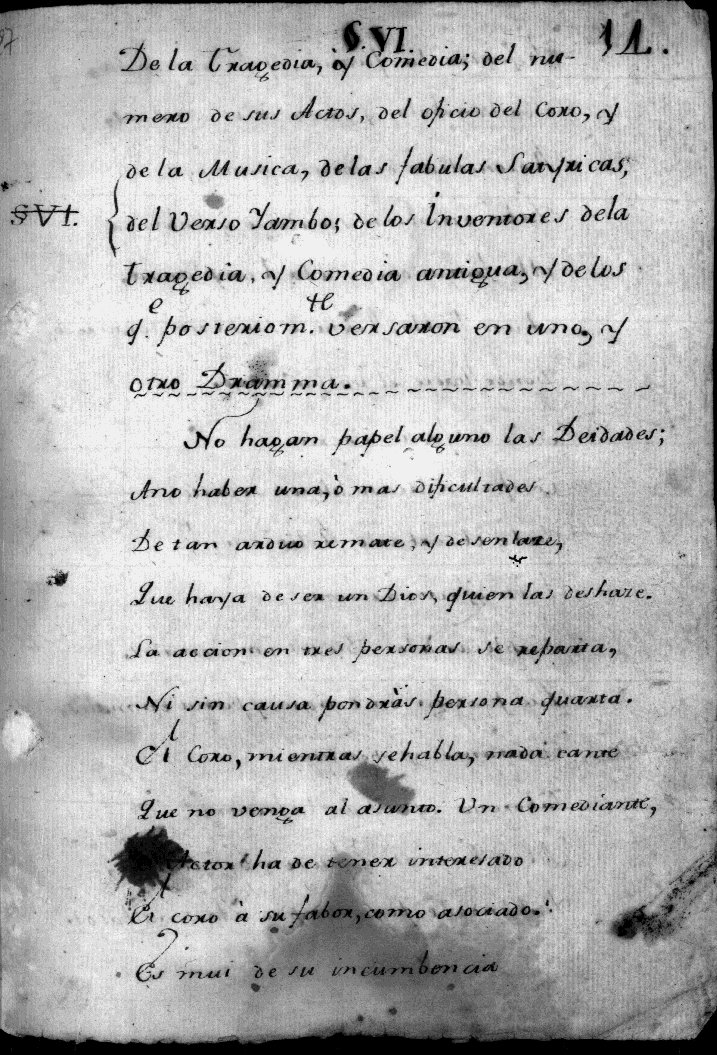 S. VI.
11.
De la Tragedia, y Comedia; del nu-
mero de sus Actos, del oficio del Coro, y
de la Musica, de las fabulas Satyricas,
SVI.
del Verso Yambo; de los Inventores dela
tragedia, y Comedia antigua, y de los
q.e posteriorm.te versaron en uno, y
otro Dramma.
No hagan papel alguno las Deidades;
Ano haber una, ò mas dificultades
De tan arduo remate, y desenlaze,
Que haya de ser un Dios, quien las deshaze.
La accion en tres personas se reparta,
Ni sin causa pondràs persona quarta.
El Coro, mientras sehabla, nada cante
Que no venga al asunto. Un Comediante,
Actor ha de tener interesado
El coro à su fabor, como asociado.
Es mui de su incumbencia